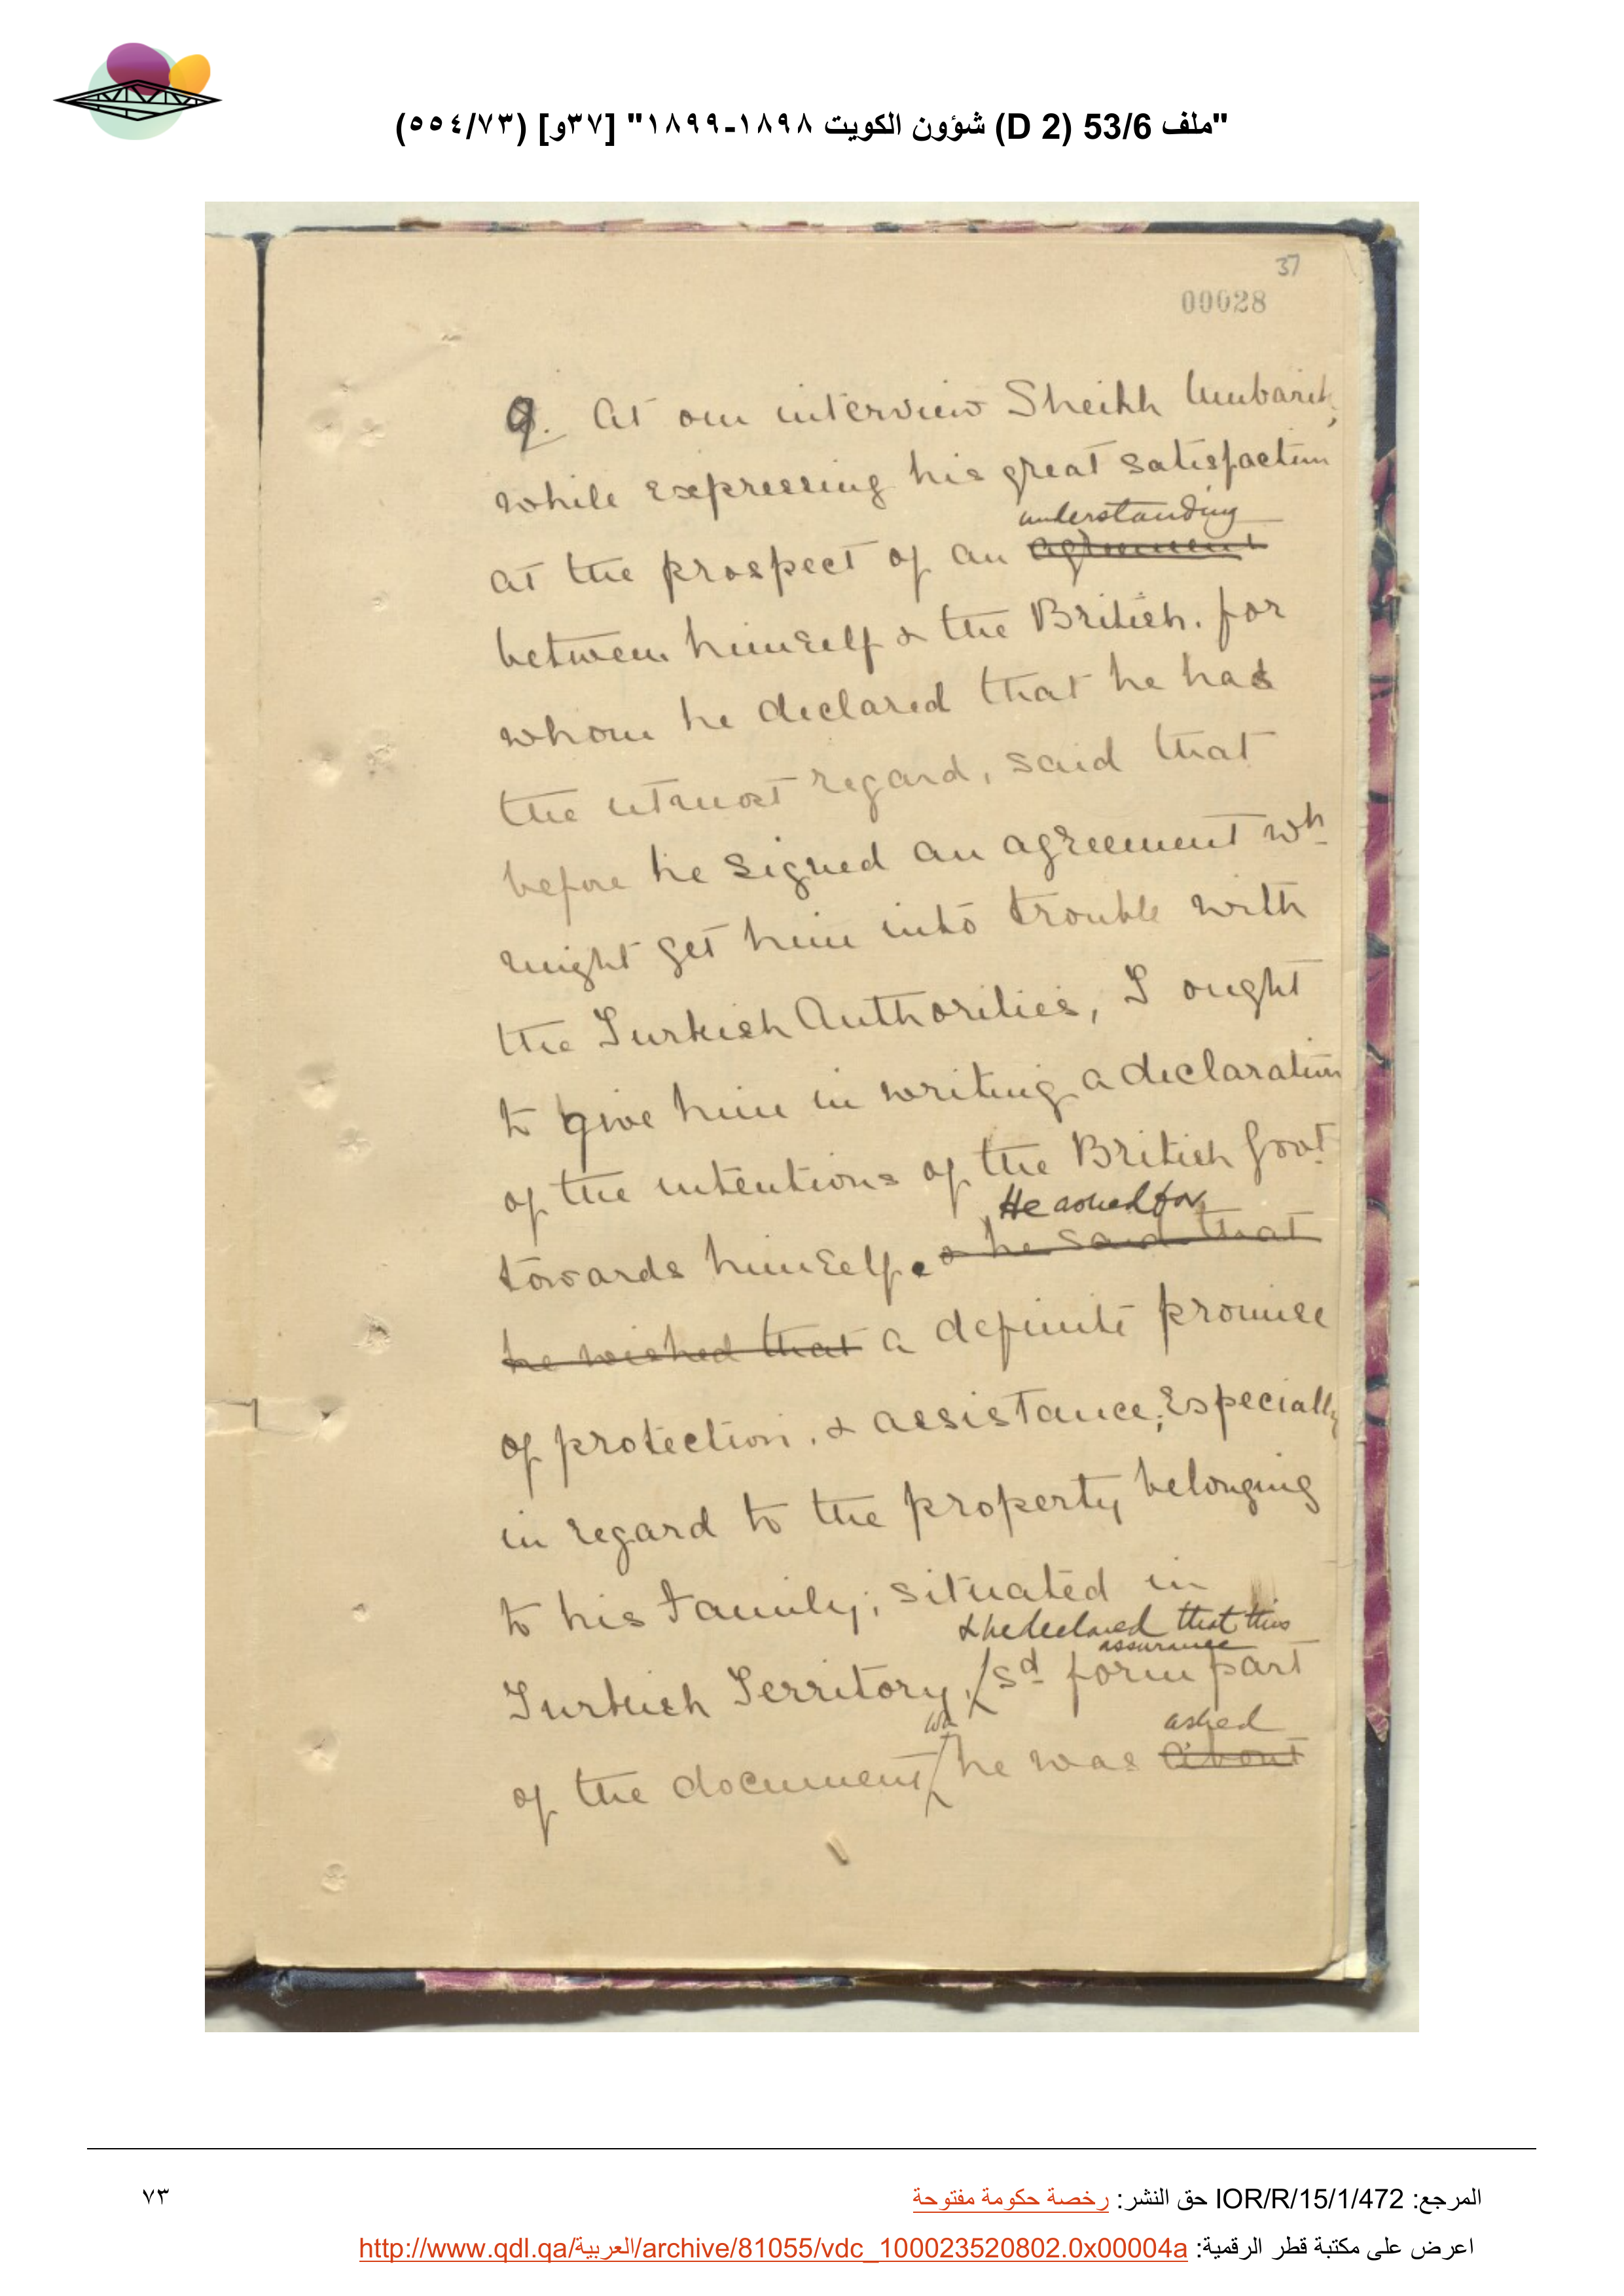 "ملف 53/6 (D 2) شؤون الكويت ١٨٩٨-١٨٩٩" [٣٧و] (٥٥٤/٧٣)
37
00028
9. At our interview Sheikh Mubarak,
while expressing his great satisfaction
understanding
at the prospect of an agreement
between himself & the British, for
whom he declared that he had
the utmost regard, said that
before he signed an agreement wh
might get him into trouble with
the Turkish Authorities, I ought
to give him in writing a declaration
of the intentions of the British Govt
He asked for
towards himself. & he said that
he wished that a definite promise
of protection, & assistance, especially
in regard to the property belonging
to his family, situated in
& he declared that this
assurance
Turkish Territory, sd form part
wh asked
of the document he was about
المرجع: IOR/R/15/1/472 حق النشر: رخصة حكومة مفتوحة
٧٣
اعرض على مكتبة قطر الرقمية: http://www.qdl.qa/العربية/archive/81055/vdc_100023520802.0x00004a